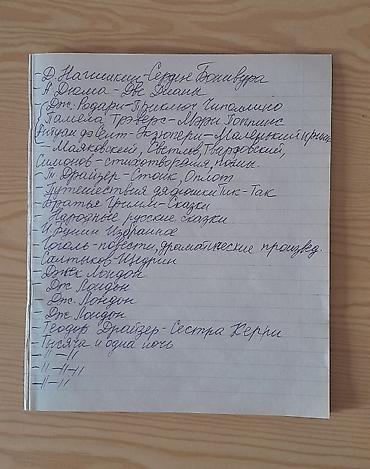 - Д. Нагишкин - Сердце Бонивура
- А Дюма - Две Дианы
- Дж. Родари - Приключ Чиполлино
Памела Трэверс - Мэри Поппинс
Антуан де Сент-Экзюпери - Маленький принц
- Маяковский, Светлов, Твардовский,
Симонов - стихотворения, поэмы.
- Т Драйзер - Стоик, Оплот
- Путешествия дядюшки Тик-Так
- Братья Гримм - Сказки
- Народные русские сказки
И. Бунин Избранное
- Гоголь - повести, драматические произвед.
Салтыков-Щедрин
- Джек Лондон
- Дж Лондон
- Дж. Лондон
- Дж Лондон
- Теодор Драйзер - Сестра Керри
- Тысяча и одна ночь
- 11 - 11
- 11 - 11 - 11
- 11 - 11